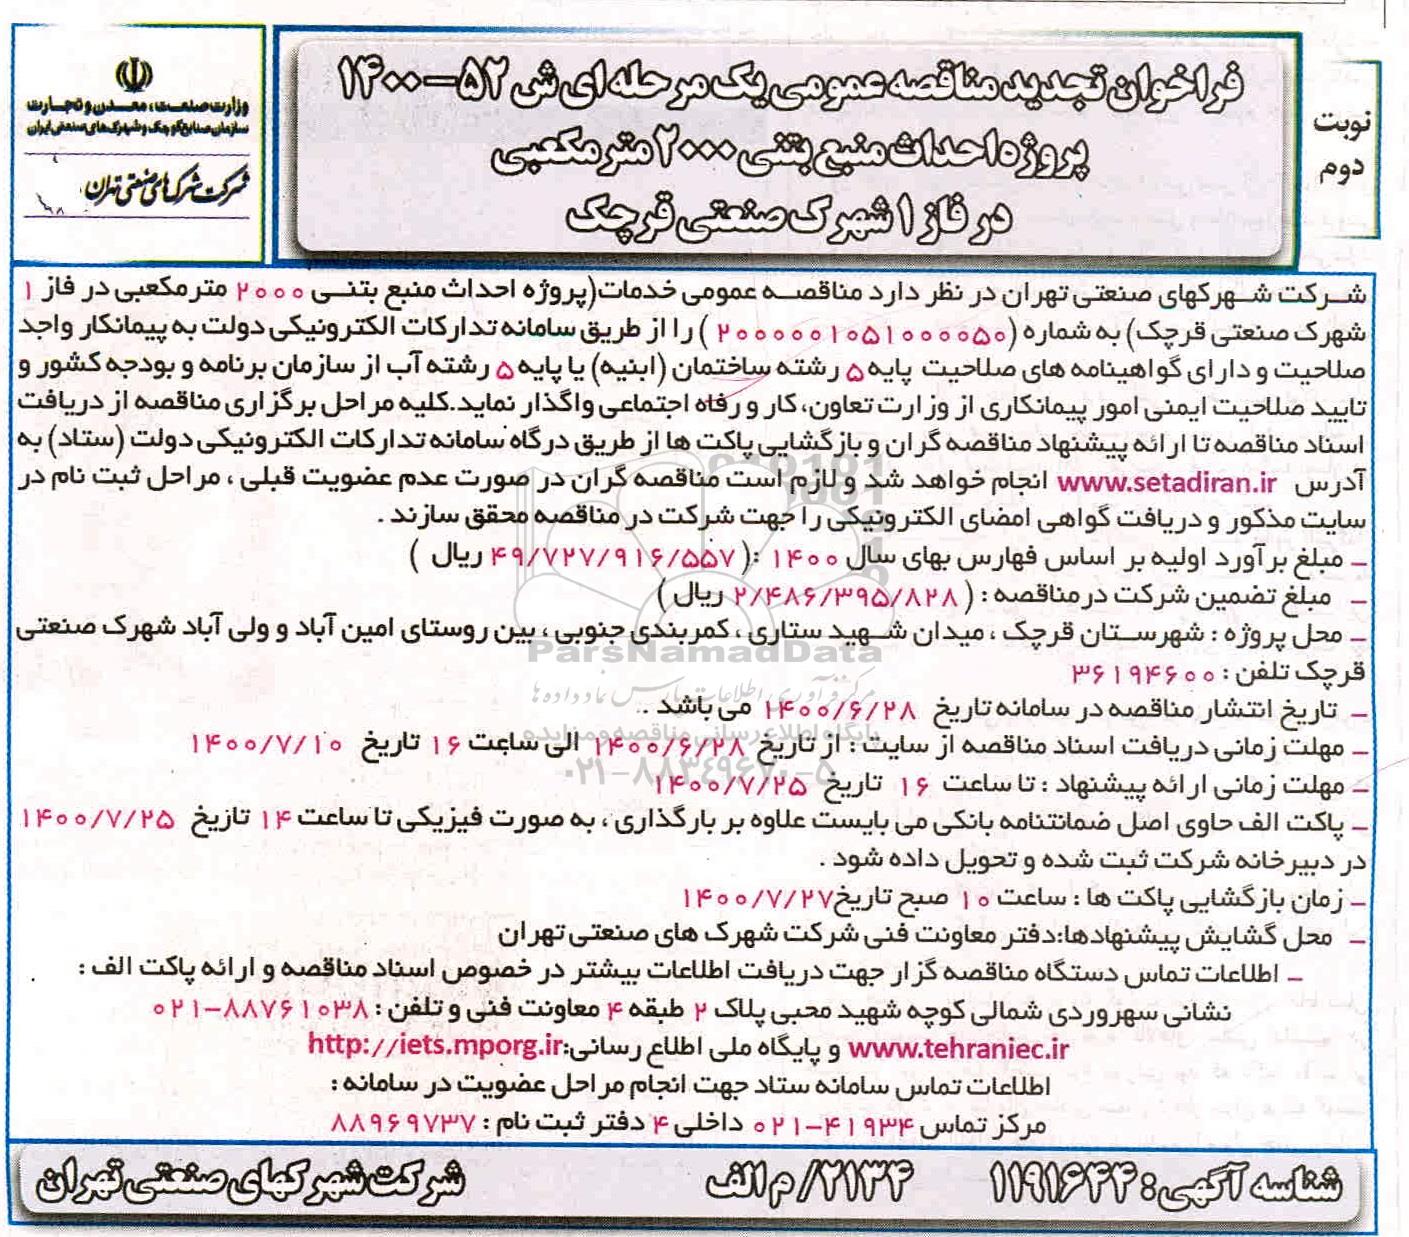 وزارت صنعت، معدن و تجارت
سازمان صنایع کوچک و شهرک‌های صنعتی ایران
شرکت شهرکهای صنعتی تهران
فراخوان تجدید مناقصه عمومی یک مرحله ای ش ۵۲-۱۴۰۰
پروژه احداث منبع بتنی ۲۰۰۰ متر مکعبی
در فاز ۱ شهرک صنعتی قرچک
نوبت
دوم
شرکت شهرکهای صنعتی تهران در نظر دارد مناقصه عمومی خدمات(پروژه احداث منبع بتنی ۲۰۰۰ متر مکعبی در فاز ۱
شهرک صنعتی قرچک) به شماره (۲۰۰۰۰۰۱۰۵۱۰۰۰۰۵۰) را از طریق سامانه تدارکات الکترونیکی دولت به پیمانکار واجد
صلاحیت و دارای گواهینامه های صلاحیت پایه ۵ رشته ساختمان (ابنیه) یا پایه ۵ رشته آب از سازمان برنامه و بودجه کشور و
تایید صلاحیت ایمنی امور پیمانکاری از وزارت تعاون، کار و رفاه اجتماعی واگذار نماید.کلیه مراحل برگزاری مناقصه از دریافت
اسناد مناقصه تا ارائه پیشنهاد مناقصه گران و بازگشایی پاکت ها از طریق درگاه سامانه تدارکات الکترونیکی دولت (ستاد) به
آدرس www.setadiran.ir انجام خواهد شد و لازم است مناقصه گران در صورت عدم عضویت قبلی ، مراحل ثبت نام در
سایت مذکور و دریافت گواهی امضای الکترونیکی را جهت شرکت در مناقصه محقق سازند .
ـ مبلغ برآورد اولیه بر اساس فهارس بهای سال ۱۴۰۰ :( ۴۹/۷۲۷/۹۱۶/۵۵۷ ریال )
ـ مبلغ تضمین شرکت در مناقصه : ( ۲/۴۸۶/۳۹۵/۸۲۸ ریال )
ـ محل پروژه : شهرستان قرچک ، میدان شهید ستاری ، کمربندی جنوبی ، بین روستای امین آباد و ولی آباد شهرک صنعتی
قرچک تلفن : ۳۶۱۹۴۶۰۰
ـ تاریخ انتشار مناقصه در سامانه تاریخ ۱۴۰۰/۶/۲۸ می باشد .
ـ مهلت زمانی دریافت اسناد مناقصه از سایت : از تاریخ ۱۴۰۰/۶/۲۸ الی ساعت ۱۶ تاریخ ۱۴۰۰/۷/۱۰
ـ مهلت زمانی ارائه پیشنهاد : تا ساعت ۱۶ تاریخ ۱۴۰۰/۷/۲۵
ـ پاکت الف حاوی اصل ضمانتنامه بانکی می بایست علاوه بر بارگذاری ، به صورت فیزیکی تا ساعت ۱۴ تاریخ ۱۴۰۰/۷/۲۵
در دبیرخانه شرکت ثبت شده و تحویل داده شود .
ـ زمان بازگشایی پاکت ها : ساعت ۱۰ صبح تاریخ۱۴۰۰/۷/۲۷
ـ محل گشایش پیشنهادها:دفتر معاونت فنی شرکت شهرک های صنعتی تهران
ـ اطلاعات تماس دستگاه مناقصه گزار جهت دریافت اطلاعات بیشتر در خصوص اسناد مناقصه و ارائه پاکت الف :
نشانی سهروردی شمالی کوچه شهید محبی پلاک ۲ طبقه ۴ معاونت فنی و تلفن : ۸۸۷۶۱۰۳۸-۰۲۱
www.tehraniec.ir و پایگاه ملی اطلاع رسانی:http://iets.mporg.ir
اطلاعات تماس سامانه ستاد جهت انجام مراحل عضویت در سامانه :
مرکز تماس ۴۱۹۳۴-۰۲۱ داخلی ۴ دفتر ثبت نام : ۸۸۹۶۹۷۳۷
شناسه آگهی: ۱۱۹۱۶۴۴ ۲۱۳۴/ م الف شرکت شهرکهای صنعتی تهران
ParsNamadData
مرکز فرآوری اطلاعات پارس نماد داده ها
پایگاه اطلاع رسانی مناقصه و مزایده
۰۲۱-۸۸۳۴۹۶۷۰-۵